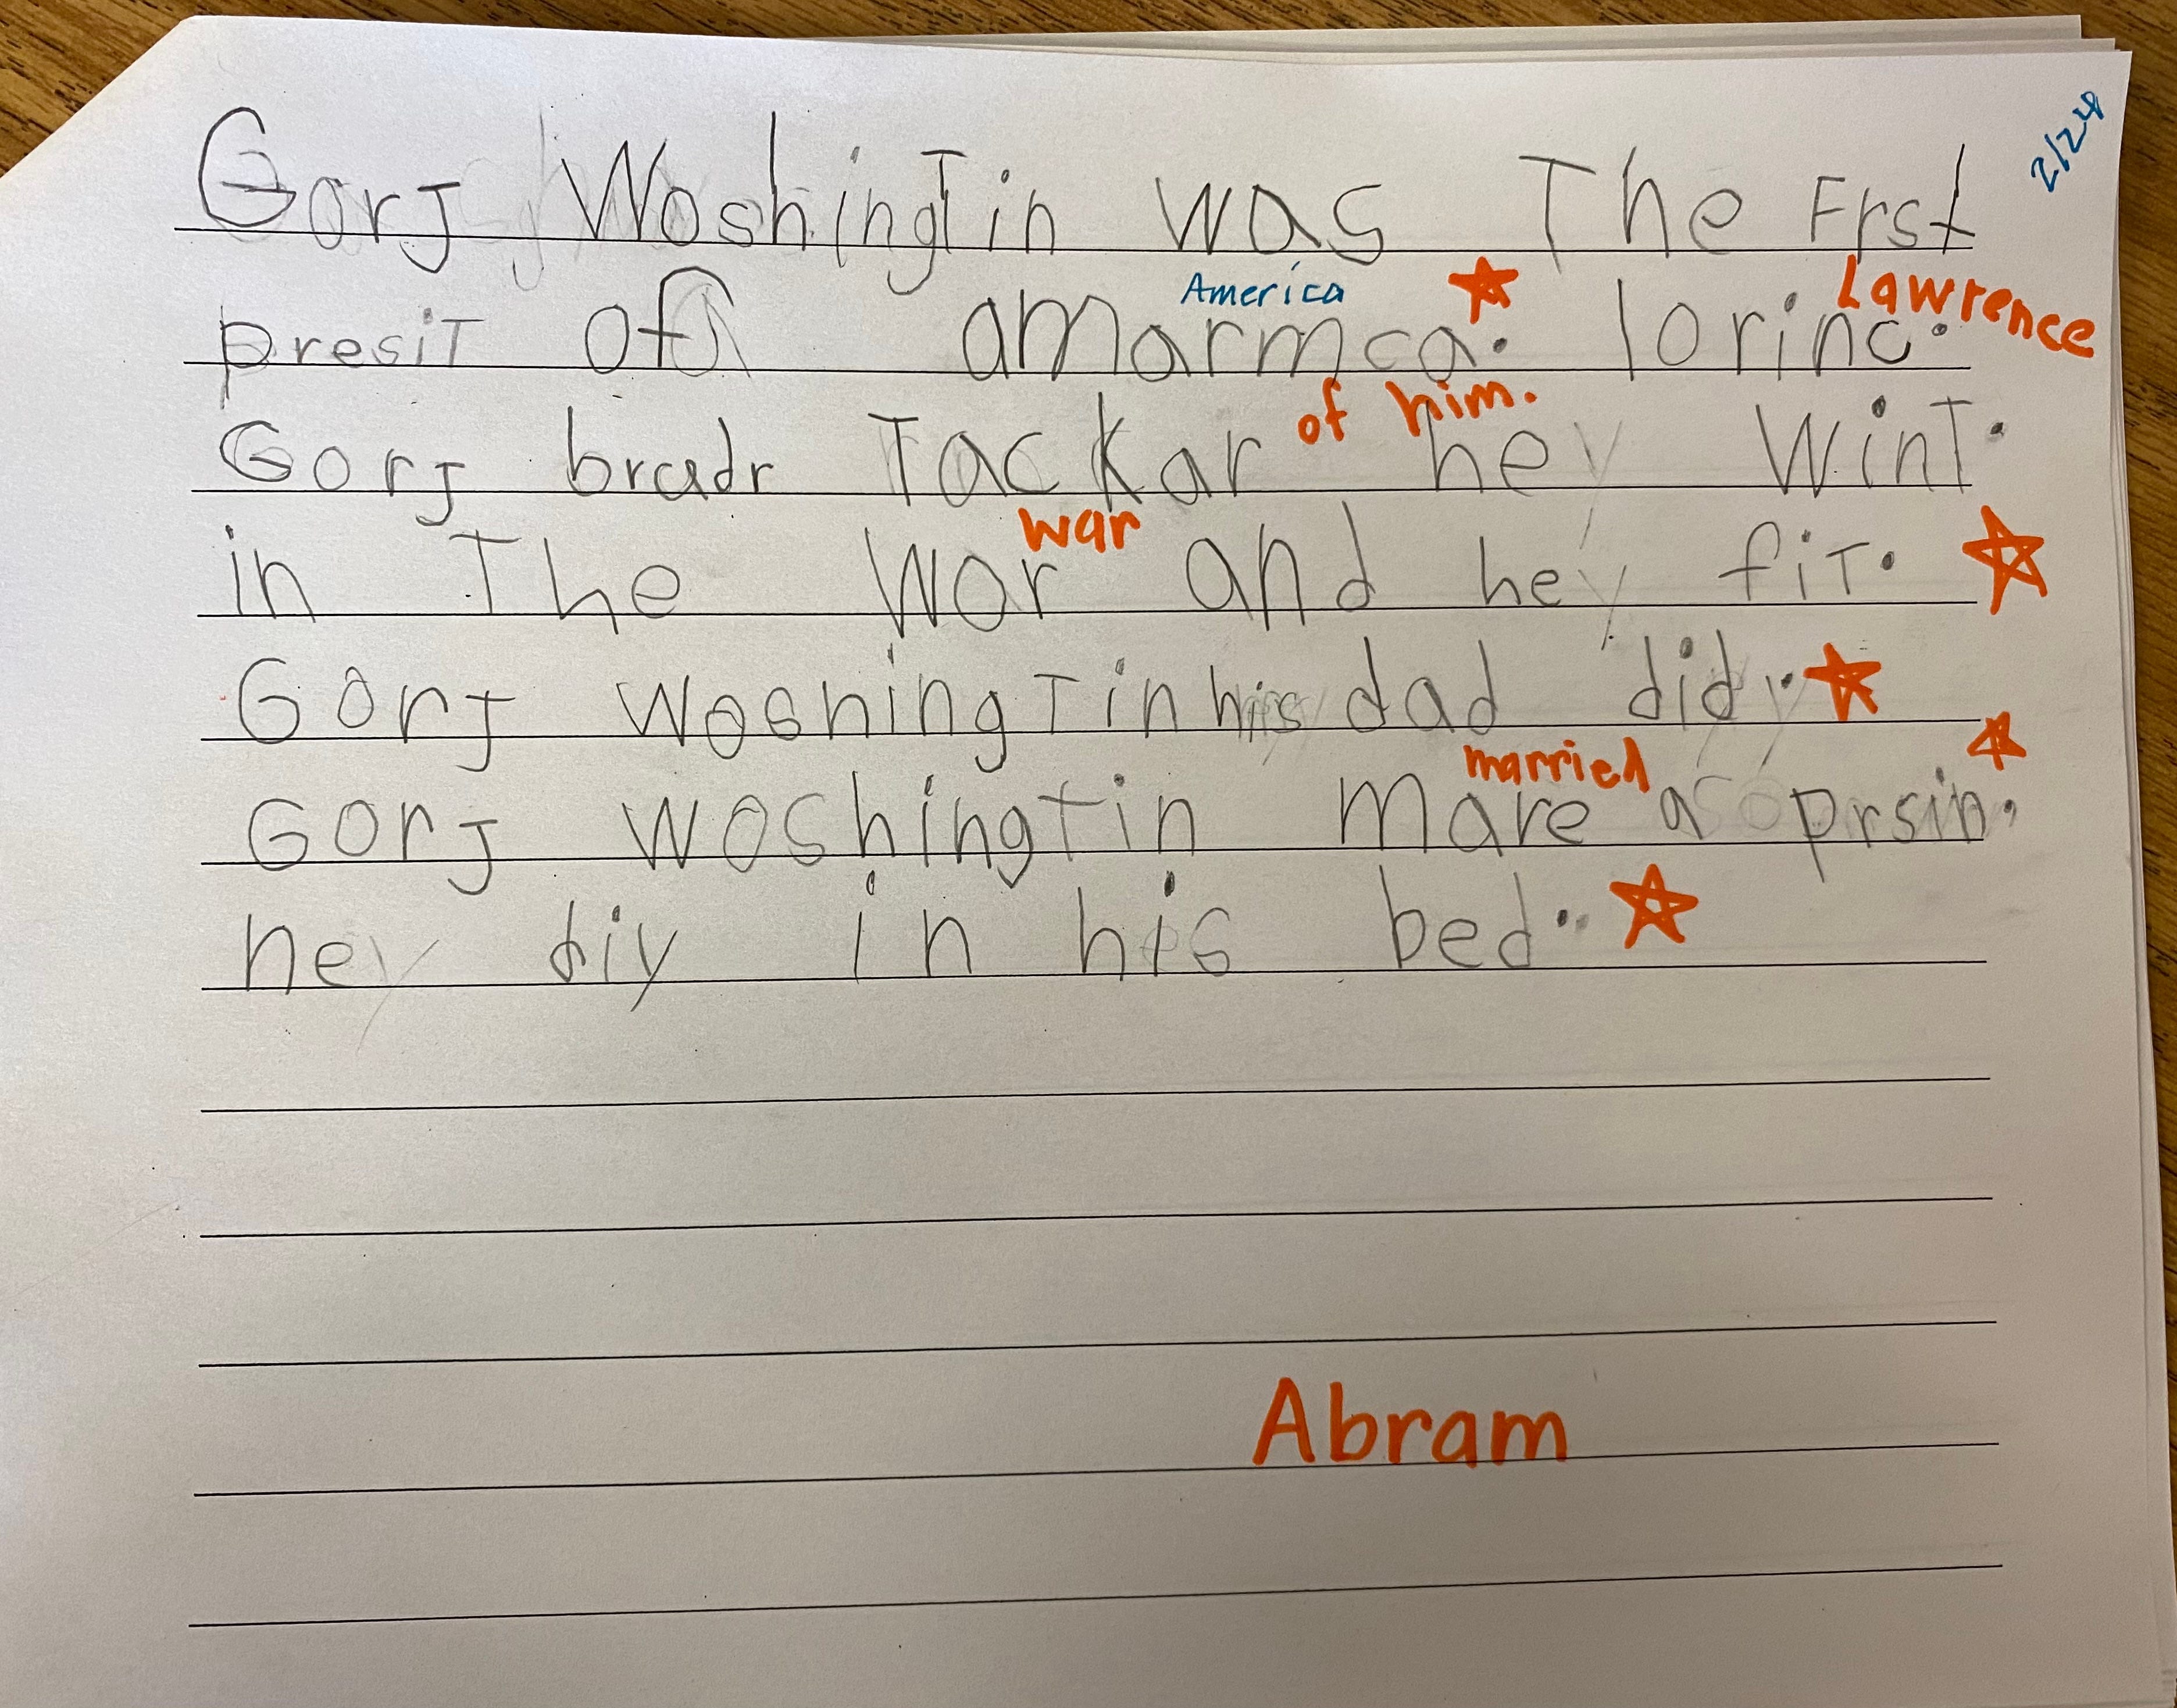 2/28
Gorj Woshingtin was The Frst
America Lawrence
presiT of amarmca. lorinc.
of him.
Gorj bradr Tackar he WinT.
war
in The War and he fiT.
Gorj WoshingTin his dad did.
married
Gorj woshingtin mare a prsin.
he diy in his bed.
Abram